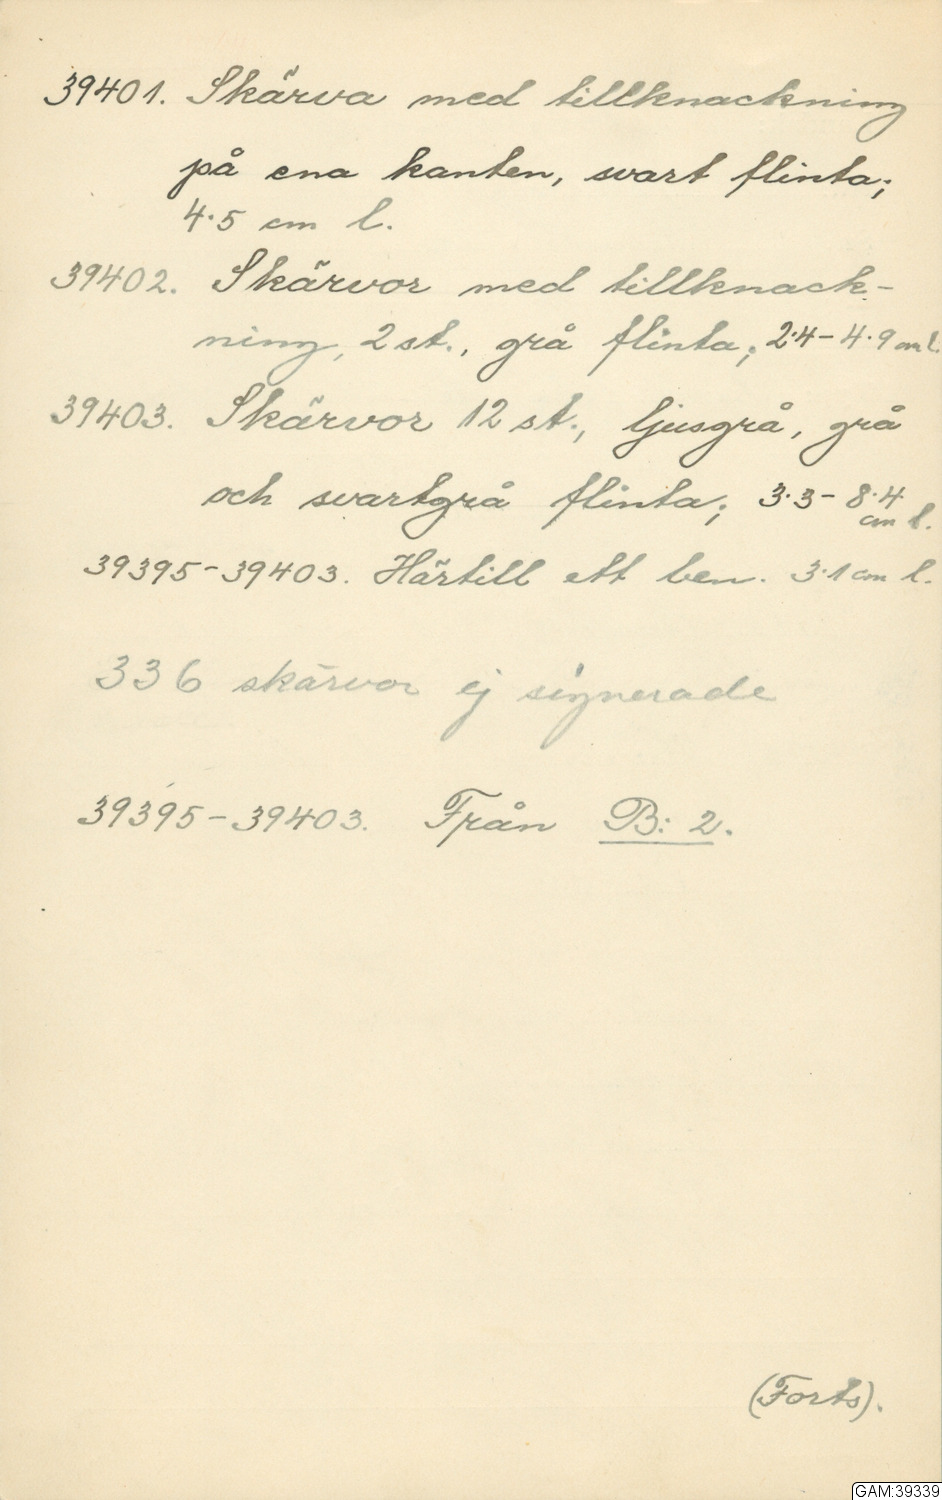 39401. Skärva med tillknackning
på ena kanten, svart flinta;
4.5 cm l.
39402. Skärvor med tillknack-
ning, 2 st., grå flinta; 2.4-4.9 cm l.
39403. Skärvor 12 st., ljusgrå, grå
och svartgrå flinta; 3.3-8.4
cm l.
39395-39403. Härtill ett ben. 3.1 cm l.
336 skärvor ej signerade
39395-39403. Från B: 2.
(Forts).
GAM:39339